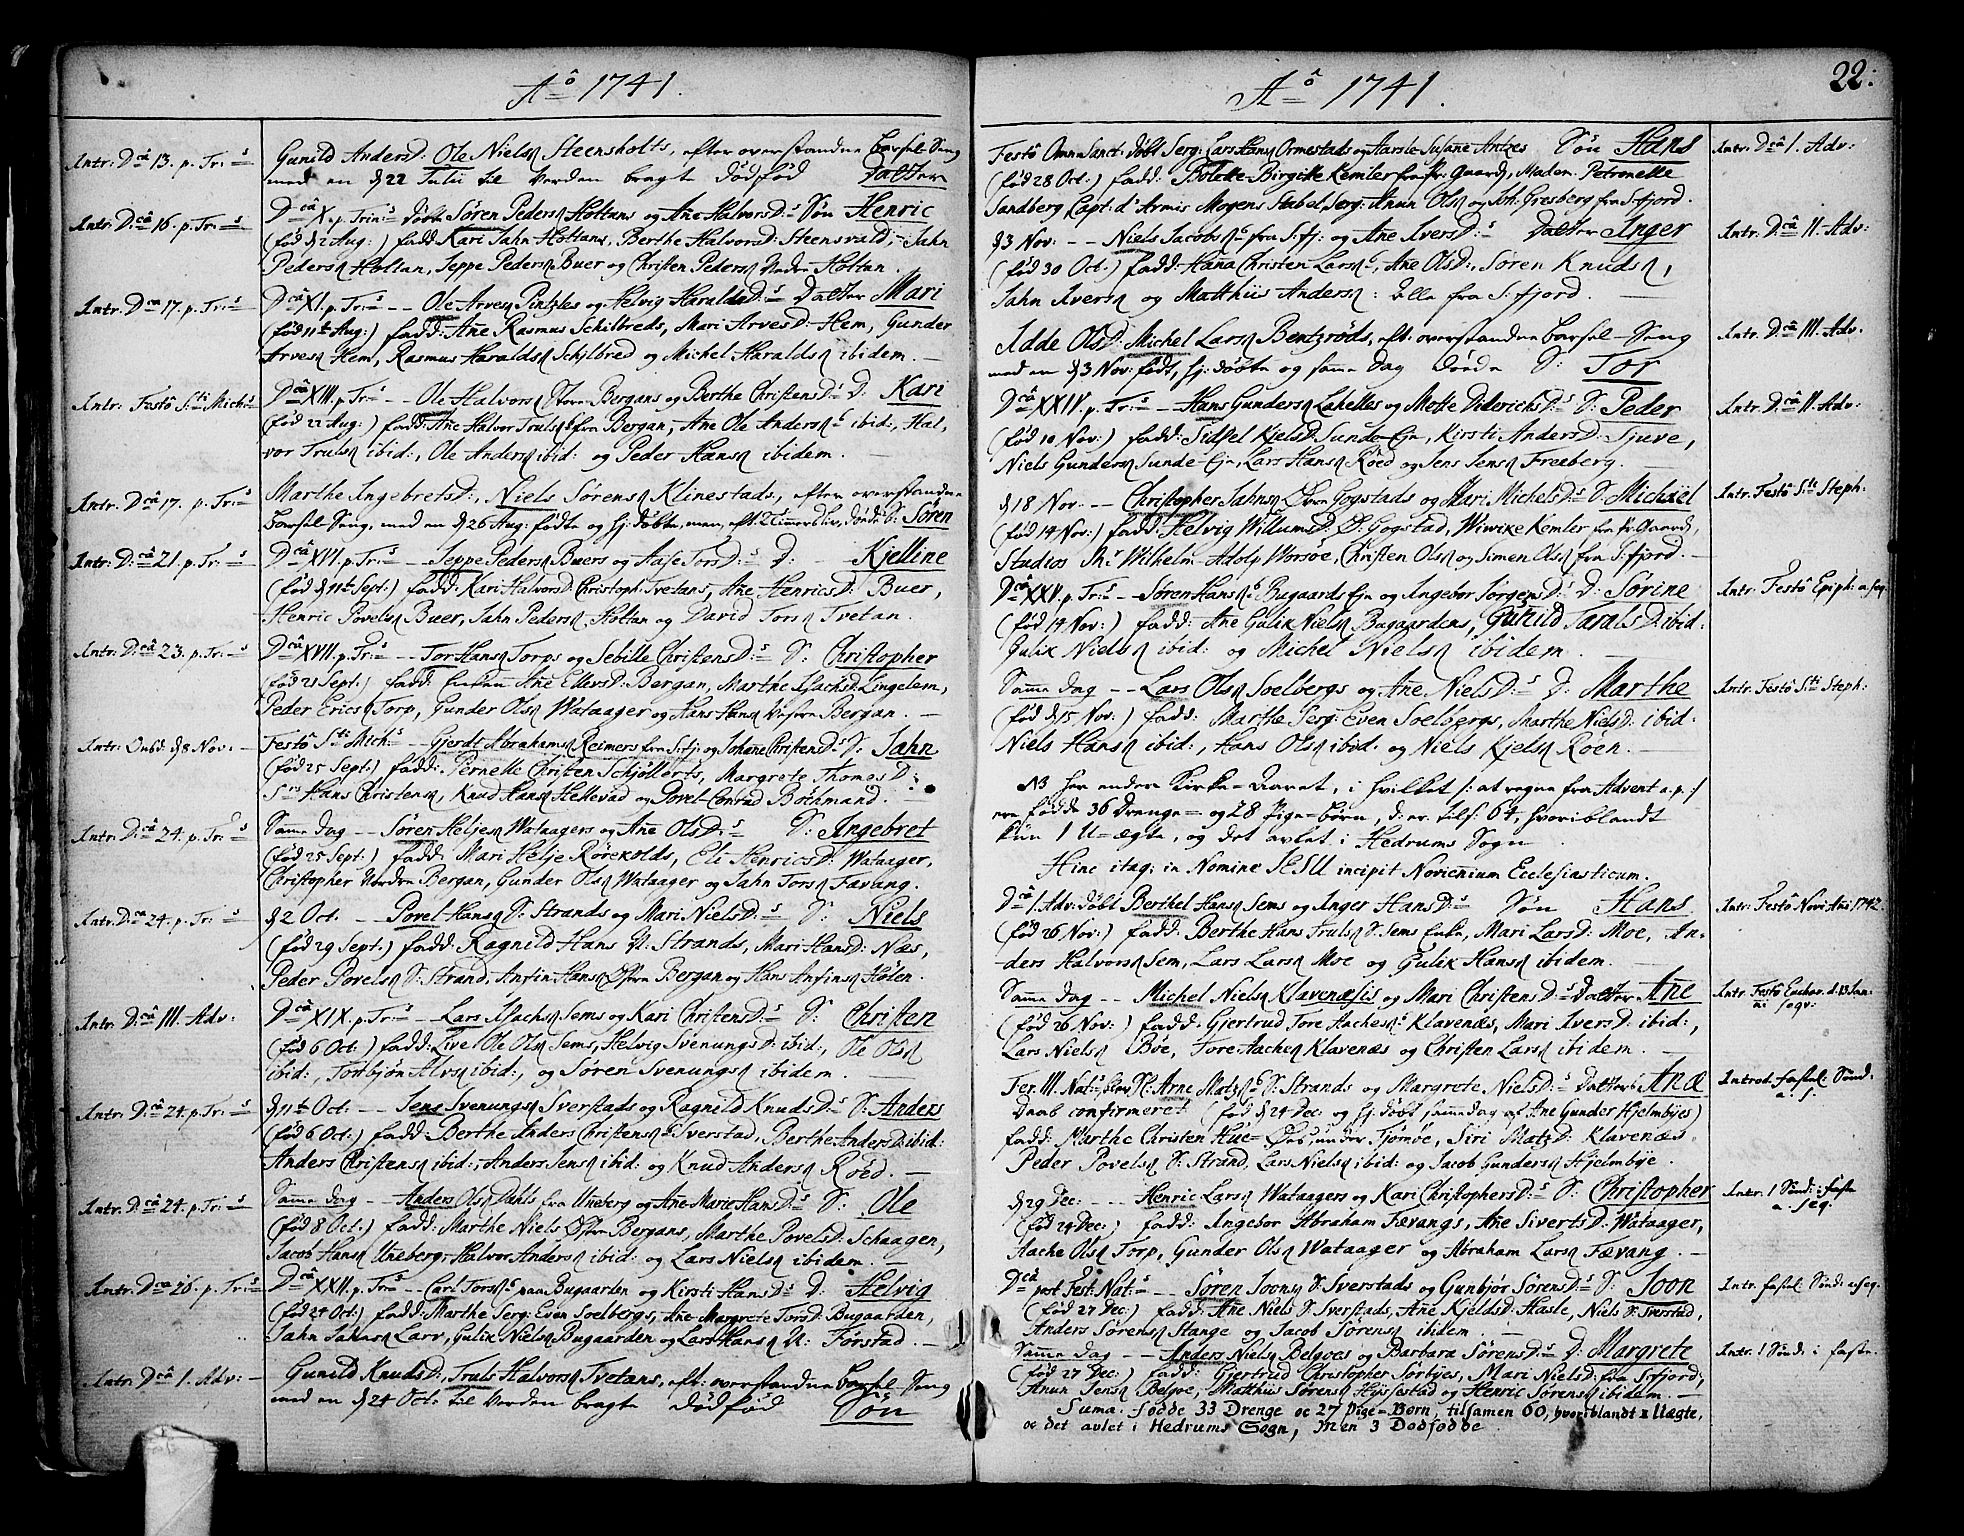 Aô 1741.
Intr: Dcâ 13. p. Tr:s
Gunild AndersD: Ole Niels Steensholts, efter overstandne barsel Seng
med en d 22 Julii til Verden bragte dödfød Datter
Intr: Dcâ 16. p. Tr:s
Dcâ X. p. Trin:s döbt Søren Peders Holtans og Ane HalvorsD:s Søn Henric
(fød d 2 Aug:) fadd: Kari Jahn Holtans, Berthe HalvorsD: Steensvald, Jahn
Peders Holtan, Jeppe Peders Buer og Christen Peders Nedre Holtan.
Intr: Dca 17. p. Tr:s
Dcâ XI. p. Tr:s -- Ole Arves Pintzles og Helvig HaraldsD:s Datter Mari
(fød 11te Aug:) fadd: Ane Rasmus Schilbreds, Mari ArvesD: Hem, Gunder
Arves Hem, Rasmus Haralds Schilbred og Michel Haralds ibidem.
Intr: Festô S:ti Mich:s
Dcâ XIII. p. Tr:s -- Ole Halvors Store Bergans og Berthe ChristensD:s D: Kari
(fød 22 Aug:) fadd: Ane Halvor Truls fra Bergan, Ane Ole Anders ibid:, Hal,
vor Truls ibid:, Ole Anders ibid: og Peder Hans ibidem.
Intr: Dcâ 17. p. Tr:s
Marthe IngebretsD:, Niels Sørens Klinestads, efter overstandne
barsel Seng, med en d 26 Aug: födte og hj: döbte, men, eft: 2 timers liv, døde S: Søren
Intr: D:câ 21. p. Tr:s
Dcâ XVI. p. Tr:s -- Jeppe Peders Buers og Aase TorsD:s D: Kjelline
(fød d 11te Sept:) fadd: Kari HalvorsD: Christoph: Tvetans, Ane HenricsD: Buer,
Henric Povels Buer, Jahn Peders Holtan og David Tors Tvetan.
Intr: D:câ 23. p. Tr:s
Dcâ XVII. p. Tr:s -- Tor Hans Torps og Sebille ChristensD:s S: Christopher
(fød 21 Sept:) fadd: Enken Ane EllersD: Bergan, Marthe IsachsD: Lingelem,
Peder Erics Torp, Gunder Ols Wataager og Hans Hans Vestre Bergan.
Intr: Onsd: d 8 Nov:
Festô S:ti Mich:s -- Gjerdt Abrahams Reimers fra S:fj: og Johane ChristensD:s S: Jahn
(fød 25 Sept:) fadd: Pernelle Christen Schjöllerts, Margrete ThomasD:
Srs Hans Christens, Knud Hans Hellevad og Povel Conrad Bothmand.
Intr: D:câ 24. p. Tr:s
Samme dag -- Søren Heljes Wataagers og Ane OlsD:s S: Ingebret
(fød 25 Sept:) fadd: Mari Helje Rørekolds, Eli HenricsD: Wataager,
Christopher Nordre Bergan, Gunder Ols Wataager og Jahn Tors Fævang.
Intr: D:câ 24. p. Tr:s
d 2 Oct. -- Povel Hans S: Strands og Mari NielsD:s S: Niels
(fød 29 Sept:) fadd: Ragnild Hans N: Strands, Mari HansD: Næs,
Peder Povels S: Strand, Anfin Hans Østre Bergan og Hans Anfins Holen.
Intr: D:câ III. Adv:
Dcâ XIX. p. Tr:s -- Lars Isachs Sems og Kari ChristensD:s S: Christen
(fød 6 Oct:) fadd: Live Ole Ols Sems, Helvig SvenungsD: ibid:, Ole Ols
ibid:, Torbjön Alvs ibid:, og Søren Svenungs ibidem.
Intr: D:câ 24. p. Tr:s
d 11te Oct: -- Jens Svenungs Sverstads og Ragnild KnudsD:s S: Anders
(fød 6 Oct:) fadd: Berthe Anders Christens Sverstad, Berthe AndersD: ibid:
Anders Christens ibid:, Anders Jens ibid: og Knud Anders Roëd.
Intr: D:câ 24. p. Tr:s
Samme dag -- Anders Ols Dahls fra Uneberg og Ane Marie HansD:s S: Ole
(fød 8 Oct:) fadd: Marthe Niels Østre Bergans, Marthe PovelsD: Schaagen,
Jacob Hans Uneberg, Halvor Anders ibid: og Lars Niels ibidem.
Intr: Dca 26. p. Tr:s
Dcâ XXII. p. Tr:s -- Carl Tors paa Bugaarden og Kirsti HansD:s D: Helvig
(fød 24 Oct:) fadd: Marthe Serg: Even Soelbergs, Ane Margrete TorsD: Bugaarden,
Jahn Jahns Larv, Gulik Niels Bugaarden og Lars Hans N: Forstad.
Intr: Dcâ 1. Adv:
Gunild KnudsD:, Truls Halvors Tvetans, eft: overstandne barsel Seng
med en d 24 Oct. til Verden bragte dödfød Søn
Aô 1741.
22:
Festô Omn: Sanct: döbt Serg: Lars Hans Ormestads og Aarsle Susane Antzes Søn Hans
Intr: Dcâ 1. Adv:
(fød 28 Oct:) fadd: Bolette Birgitte Kemler fra Pr: Gaard, Madem: Petronelle
Sandberg Capt: d'Armis Mogens Stabel, Serg: Anun Ols og Joh: Gresberg fra S:fjord.
d 3 Nov: -- Niels Jacobs fra S:fj: og Ane IversD:s Datter Inger
Intr: D:câ II. Adv:
(fød 30 Oct:) fadd: Hana Christen Lars, Ane OlsD:, Søren Knuds,
Jahn Ivers og Matthiis Anders: Alle fra S:fjord.
Idde OlsD: Michel Lars Bentzröds, eft: overstandne barsel-Seng
Intr: D:câ III. Adv:
med en d 3 Nov: födt, hj: döbte og same Dag døde S: Tor
Dcâ XXIV. p. Tr:s -- Hans Gunders Lahelles og Mette DiderichsD:s S: Peder
Intr: D:câ II. Adv:
(fød 10 Nov:) fadd: Sidsel KjelsD: Sunde-Eje, Kirsti AndersD: Tjuve,
Niels Gunders Sunde-Eje, Lars Hans Röed og Jens Jens Freeberg.
d 18 Nov. -- Christopher Jahns Øvre Gogstads og Mari MichelsD:s S: Michael
Intr: Festô S:ti Steph:
(fød 14 Nov:) fadd: Helvig WillumsD: Ø: Gogstad, Wiwike Kemler fra Pr: Gaard,
Studios Mr Wilhelm Adolp Worsöe, Christen Ols og Simen Ols fra S:fjord.
Dcâ XXV. p. Tr:s -- Søren Hans Bugaards Eje og Ingebor JørgensD:s D: Sørine
Intr: Festô Epiph: a. seq:
(fød 14 Nov:) fadd: Ane Gulik Niels Bugaardens, Gunild TaralsD: ibid:
Gulik Niels ibid: og Michel Niels ibidem.
Samme dag -- Lars Ols Soelbergs og Ane NielsD:s D: Marthe
Intr: Festô S:ti Steph:
(fød d 15 Nov:) fadd: Marthe Serg: Even Soelbergs, Marthe NielsD: ibid:
Niels Hans ibid:, Hans Ols ibid: og Niels Kjels Röen.
NB her endes Kirke-Aaret, i hvilket /: at regne fra Advent a. p: /
ere födde 36 Drenge- og 28 Pige-börn, d: er tils: 64, hvoriblandt
kun 1 U-ægte, og det avlet i Hedrums Sogn.
Hinc itaq; in Nomine JESU incipit Novennium Ecclesiasticum.
Dcâ 1. Adv: döbt Berthel Hans Sems og Inger HansD:s Søn Hans
Intr: Festô Novi Ani 1742.
(fød 26 Nov:) fadd: Berthe Hans Truls S: Sems Enke, Mari LarsD: Moe, An-
ders Halvors Sem, Lars Lars Moe og Gulik Hans ibidem.
Samme dag -- Michel Niels Klavenæsis og Mari ChristensD:s Datter Ane
Intr: Festô Enhar. d. 13 Jan:
ai seqv:
(fød 26 Nov:) fadd: Gjertrud Tore Aaches Klavenæs, Mari IversD: ibid:,
Lars Niels Böe, Tore Aaches Klavenæs og Christen Lars ibidem.
Fer: III. Nat: blev Sl: Arne Matz S: Strands og Margrete NielsD:s Datter Anæ
Introd. fastel. Sönd.
a. s.
Daab confirmeret (fød d 24 Dec: og hj: döbt samme dag af Ane Gunder Hjelmbyes)
fadd: Marthe Christen Hüe-Øes under Tjömöe, Siri MatzD: Klavenæs
Peder Povels S: Strand, Lars Niels ibid: og Jacob Gunders Hjelmbye.
d 29 Dec: -- Henric Lars Wataagers og Kari ChristophersD:s S: Christopher
Intr: 1 Sönd: i faste
a. seq.
(fød 24 Dec:) fadd: Ingebor Abraham Fævangs, Ane SivertsD: Wataager,
Aache Ols Torp, Gunder Ols Wataager og Abraham Lars Fævang.
Dcâ post Fest: Nat:s -- Søren Joons S: Sverstads og Gunbjør SørensD:s S: Joon
Intr: fastel. Sönd: a. seq.
(fød 27 Dec:) fadd: Ane Niels S: Sverstads, Ane KjeldsD: Hasle, Niels S: Sverstad,
Anders Sørens Stange og Jacob Sørens ibidem.
Samme dag -- Anders Niels Belgoes og Barbara SørensD:s D: Margrete
Intr: 1 Sönd: i faste.
(fød 27 Dec:) fadd: Gjertrud Christopher Sörbjes, Mari NielsD: fra S:fjord,
Anun Jens Belgoe, Matthiis Sørens Hjüsestad og Henric Sørens ibidem.
Suma: födde 33 Drenge oc 27 Pige-Börn, tilsamen 60, hvoriblandt 1 Uægte,
oc det avlet i Hedrums Sogn, Men 3 Dodfødde.